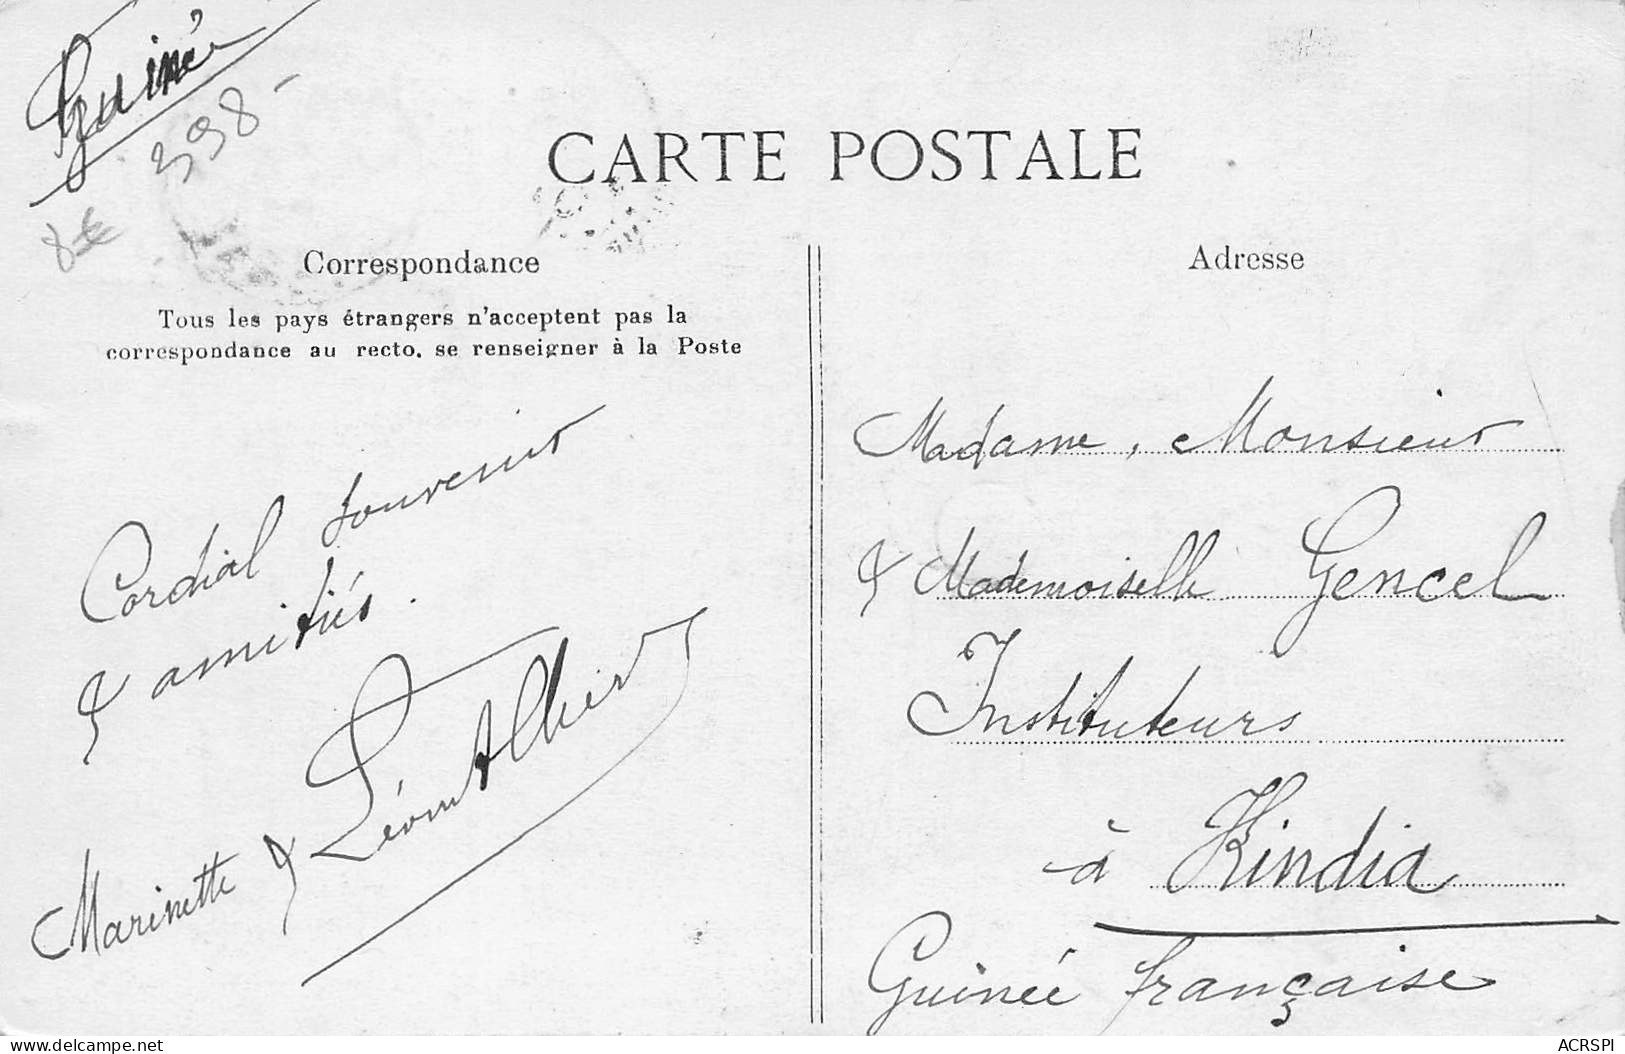 Guinée
398-
8€
CARTE POSTALE
Correspondance
Tous les pays étrangers n'acceptent pas la
correspondance au recto. se renseigner à la Poste
Cordial souvenir
& amitiés.
Marinette & Léon
Adresse
Madame, Monsieur
& Mademoiselle Gencel
Instituteurs
à Kindia
Guinée française
delcampe.net
ACRSPI